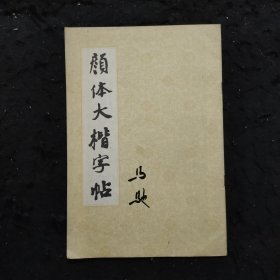 顏体大楷字帖
马驰